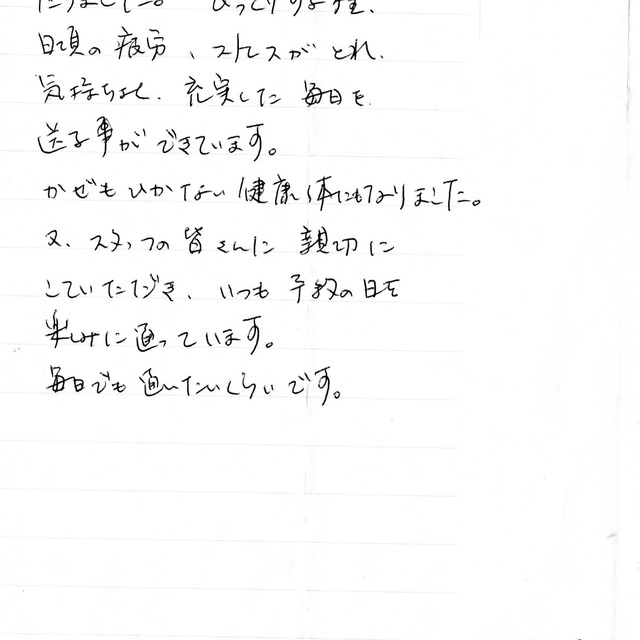 なりました。びっくりする程、
日頃の疲労、ストレスがとれ、
気持ちよく、充実した毎日を
送る事ができています。
かぜもひかない健康体にもなりました。
又、スタッフの皆さんに親切に
していただき、いつも予約の日を
楽しみに通っています。
毎日でも通いたいくらいです。